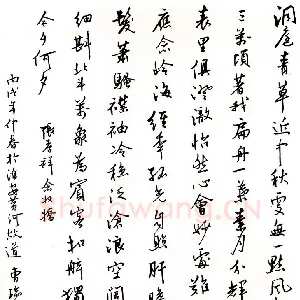 洞庭青草近中秋更無一點風
三萬頃著我扁舟一葉素月分輝
表里俱澄澈怡然心會妙處難
應念嶺海經年孤光自照肝膽
髮蕭騷襟袖冷穩泛滄浪空闊
細斟北斗萬象為賓客扣舷獨
今夕何夕
張孝祥念奴嬌
丙戌年仲春於淮安黃河故道
shufawang.cn